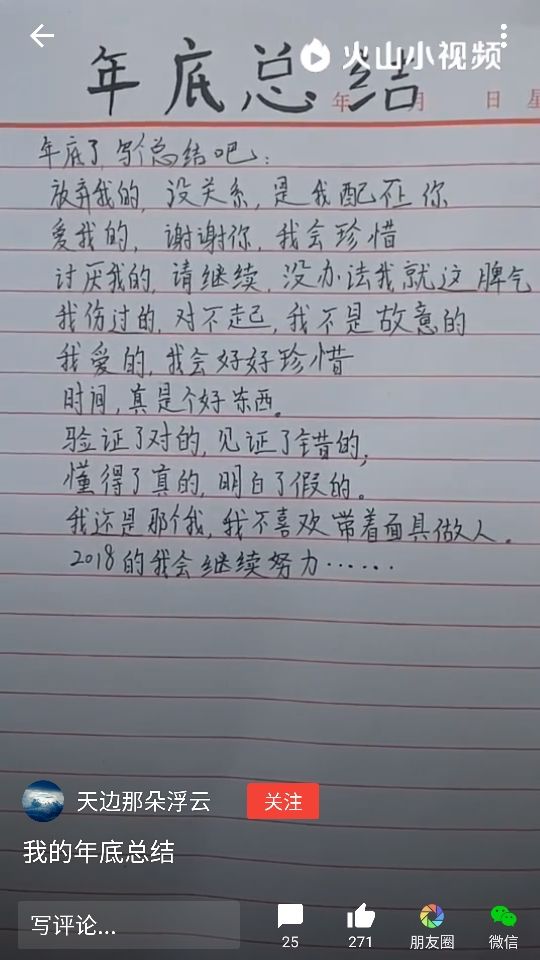 火山小视频
年底总结
年 月 日 星
年底了,写个总结吧:
放弃我的,没关系,是我配不上你
爱我的,谢谢你,我会珍惜
讨厌我的,请继续,没办法我就这脾气
我伤过的,对不起,我不是故意的
我爱的,我会好好珍惜
时间,真是个好东西。
验证了对的,见证了错的,
懂得了真的,明白了假的。
我还是那个我,我不喜欢带着面具做人。
2018的我会继续努力……
天边那朵浮云
关注
我的年底总结
写评论...
25
271
朋友圈
微信